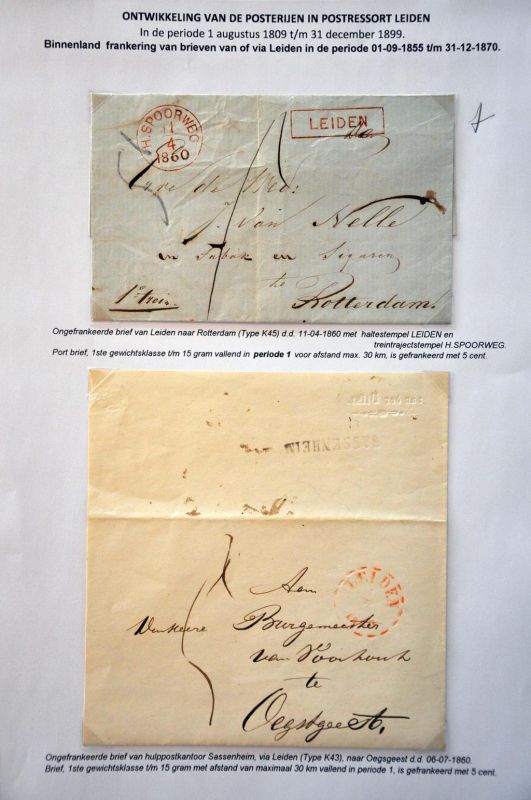 ONTWIKKELING VAN DE POSTERIJEN IN POSTRESSORT LEIDEN
In de periode 1 augustus 1809 t/m 31 december 1899.
Binnenland frankering van brieven van of via Leiden in de periode 01-09-1855 t/m 31-12-1870.
H.SPOORWEG
11
4
1860
LEIDEN
de
J. Van Nelle
in Tabak en Sigaren
te
Rotterdam.
1e trein.
Ongefrankeerde brief van Leiden naar Rotterdam (Type K45) d.d. 11-04-1860 met haltestempel LEIDEN en
treintrajectstempel H.SPOORWEG.
Port brief, 1ste gewichtsklasse t/m 15 gram vallend in periode 1 voor afstand max. 30 km, is gefrankeerd met 5 cent.
SASSENHEIM
LEIDEN
Aan
Burgemeester
van Voorhout
te
Oegstgeest.
Ongefrankeerde brief van hulppostkantoor Sassenheim, via Leiden (Type K43), naar Oegsgeest d.d. 06-07-1860.
Brief, 1ste gewichtsklasse t/m 15 gram met afstand van maximaal 30 km vallend in periode 1, is gefrankeerd met 5 cent.